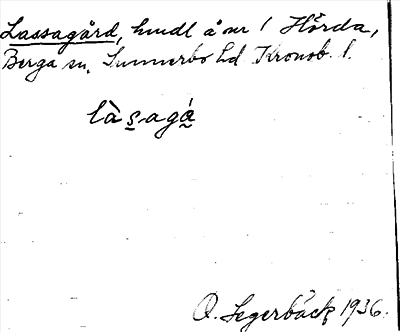 Lassagård, hmdl å nr 1 Hörda,
Berga sn. Sunnerbo hd Kronob. l.
làs̰agá̰
O. Segerbäck 1936.